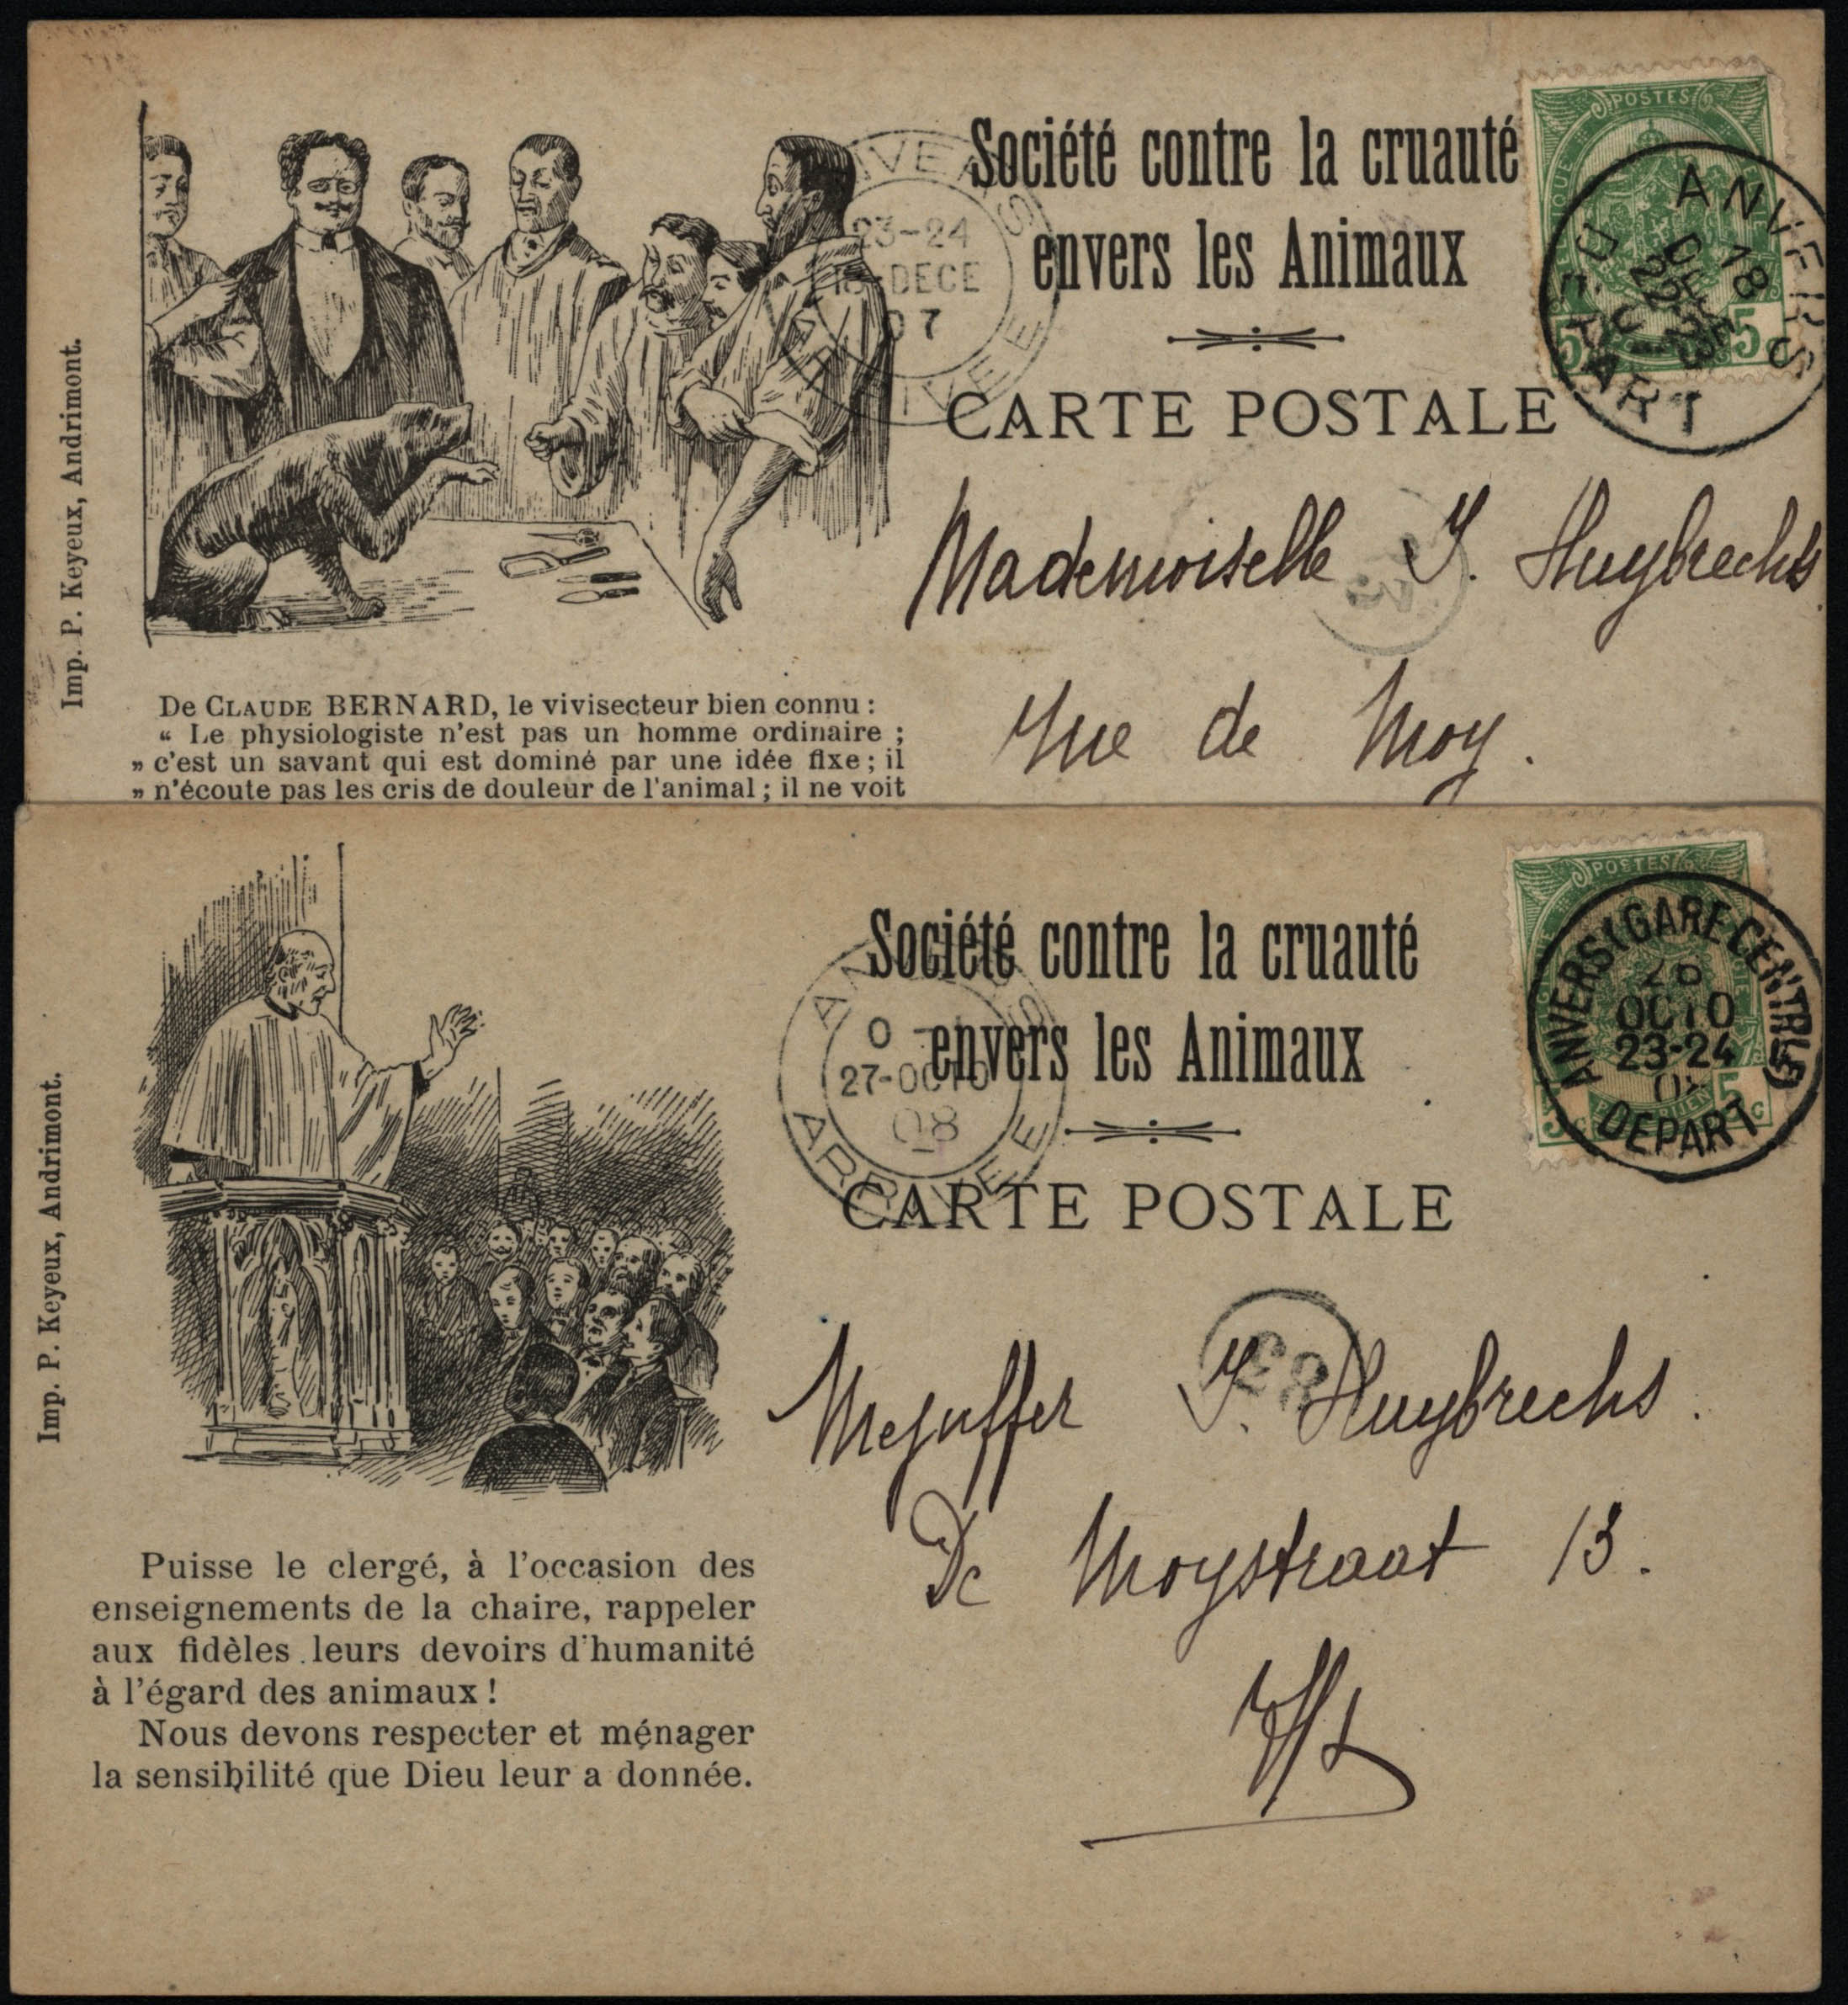 Société contre la cruauté
envers les Animaux
CARTE POSTALE
POSTES
5 5c
ANVERS
18
DECE
22-23
DEPART
ANVERS
23-24
18-DECE
07
ARRIVEE
Imp. P. Keyeux, Andrimont.
De CLAUDE BERNARD, le vivisecteur bien connu :
“ Le physiologiste n'est pas un homme ordinaire ;
„ c'est un savant qui est dominé par une idée fixe ; il
„ n'écoute pas les cris de douleur de l'animal ; il ne voit
Mademoiselle J. Huybrechts
Rue de Moy.
Société contre la cruauté
envers les Animaux
CARTE POSTALE
POSTES
5c
ANVERS (GARE CENTRALE)
26
OCTO
23-24
DEPART
27-OCTO
08
ARRIVEE
Imp. P. Keyeux, Andrimont.
Mejuffer J. Huybrechs.
De Moystraat 13.
Puisse le clergé, à l'occasion des
enseignements de la chaire, rappeler
aux fidèles leurs devoirs d'humanité
à l'égard des animaux !
Nous devons respecter et ménager
la sensibilité que Dieu leur a donnée.